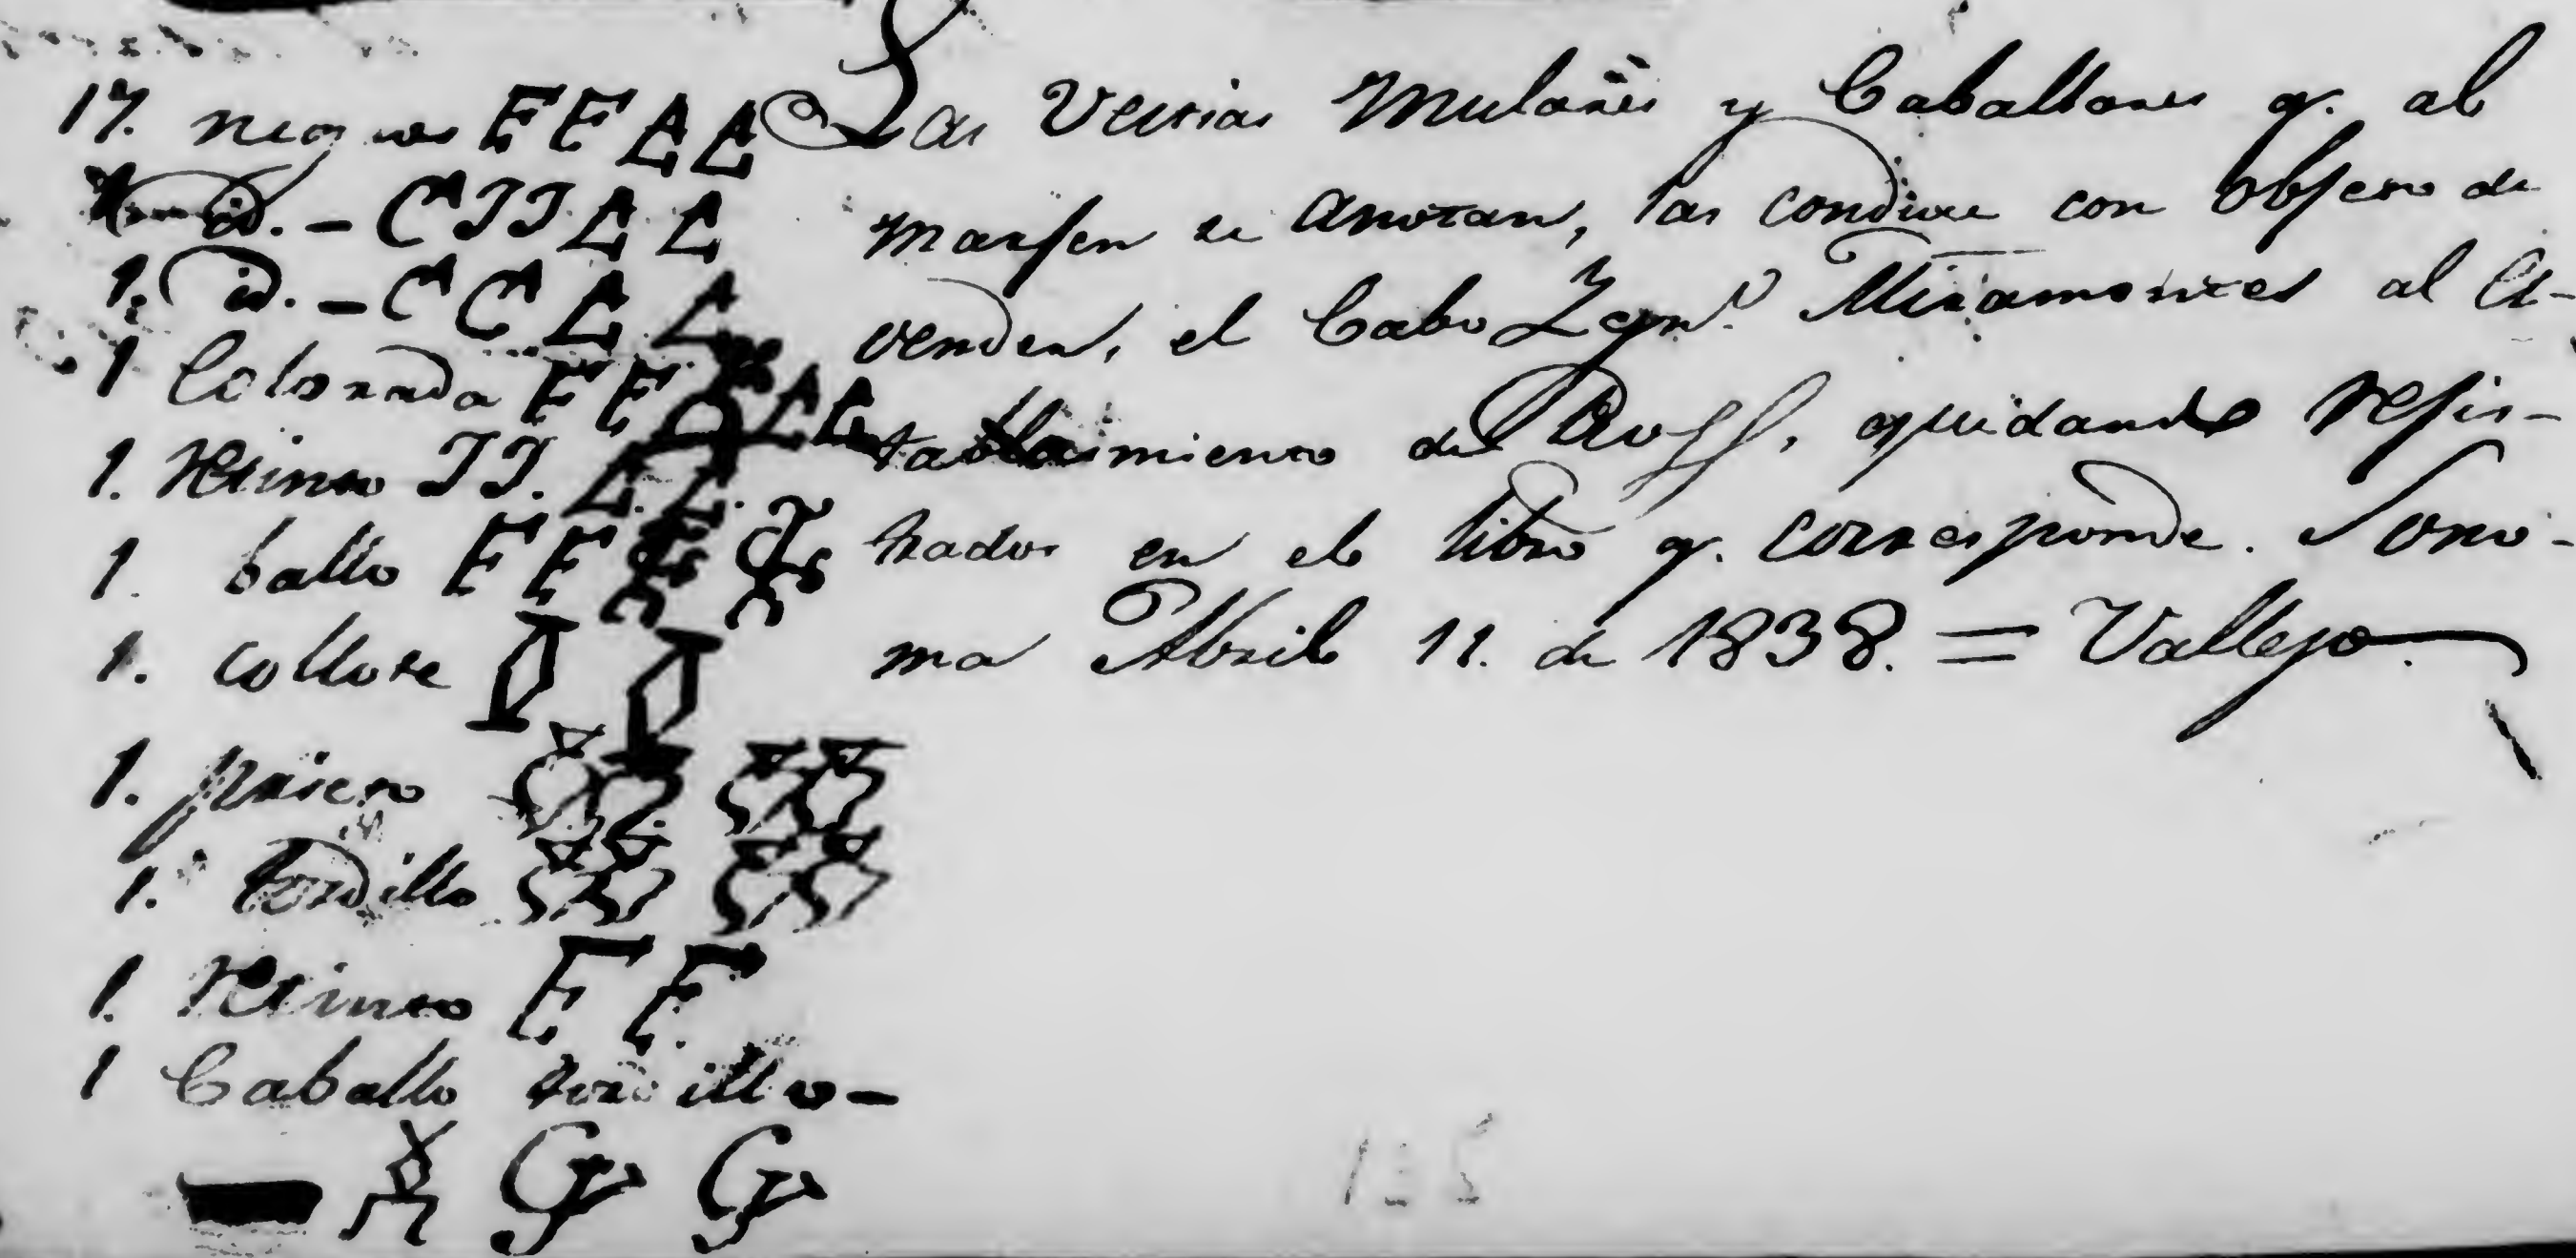 17. negras FF
id. -
1. id. -
1 Colorada FF
1. Retinto JJ.
1. ballo FF
1. collote
1. prieto
1. tordillo
1. Retinto FF.
1 Caballo tordillo-
Las Vestias Mulares y Caballares q. al
marjen se anotan, las conduce con objeto de
vender, el Cabo Miramontes al Es-
tablesimiento de Ross, quedando rejis-
tradas en el libro q. corresponde. Sono-
ma Abril 11. de 1838. = Vallejo.